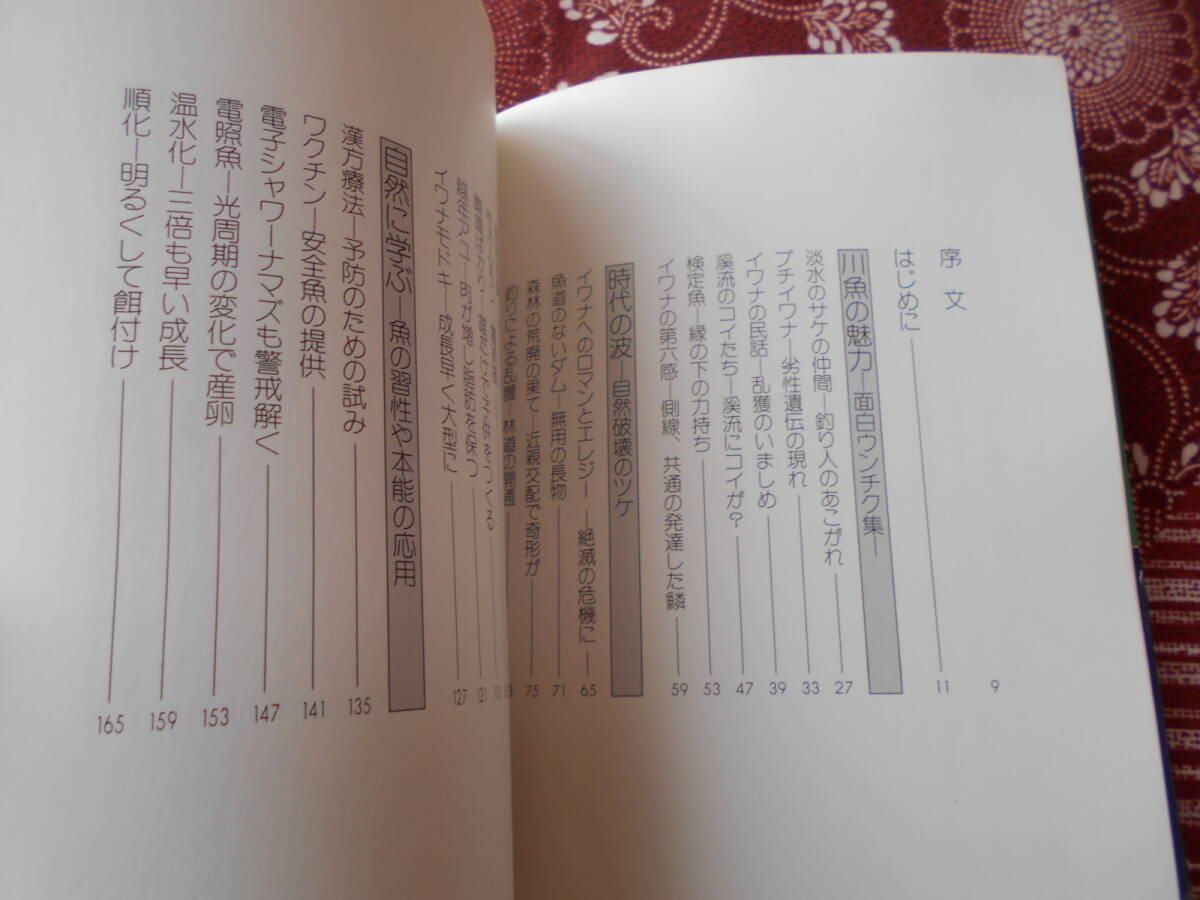 序文 9
はじめに 11
川魚の魅力―面白ウンチク集―
淡水のサケの仲間―釣り人のあこがれ 27
プチイワナ―劣性遺伝の現れ 33
イワナの民話―乱獲のいましめ 39
溪流のコイたち―溪流にコイが? 47
検定魚―縁の下の力持ち 53
イワナの第六感―側線、共通の発達した鱗 59
時代の波―自然破壊のツケ
イワナへのロマンとエレジー―絶滅の危機に 65
魚道のないダム―無用の長物 71
森林の荒廃の果て―近親交配で奇形が 75
釣りによる乱獲―林道の開通
121
イワナモドキ―成長早く大型に 127
自然に学ぶ―魚の習性や本能の応用
漢方療法―予防のための試み 135
ワクチン―安全魚の提供、 141
電子シャワーナマズも警戒解く 147
電照魚―光周期の変化で産卵 153
温水化―三倍も早い成長 159
順化―明るくして餌付け 165